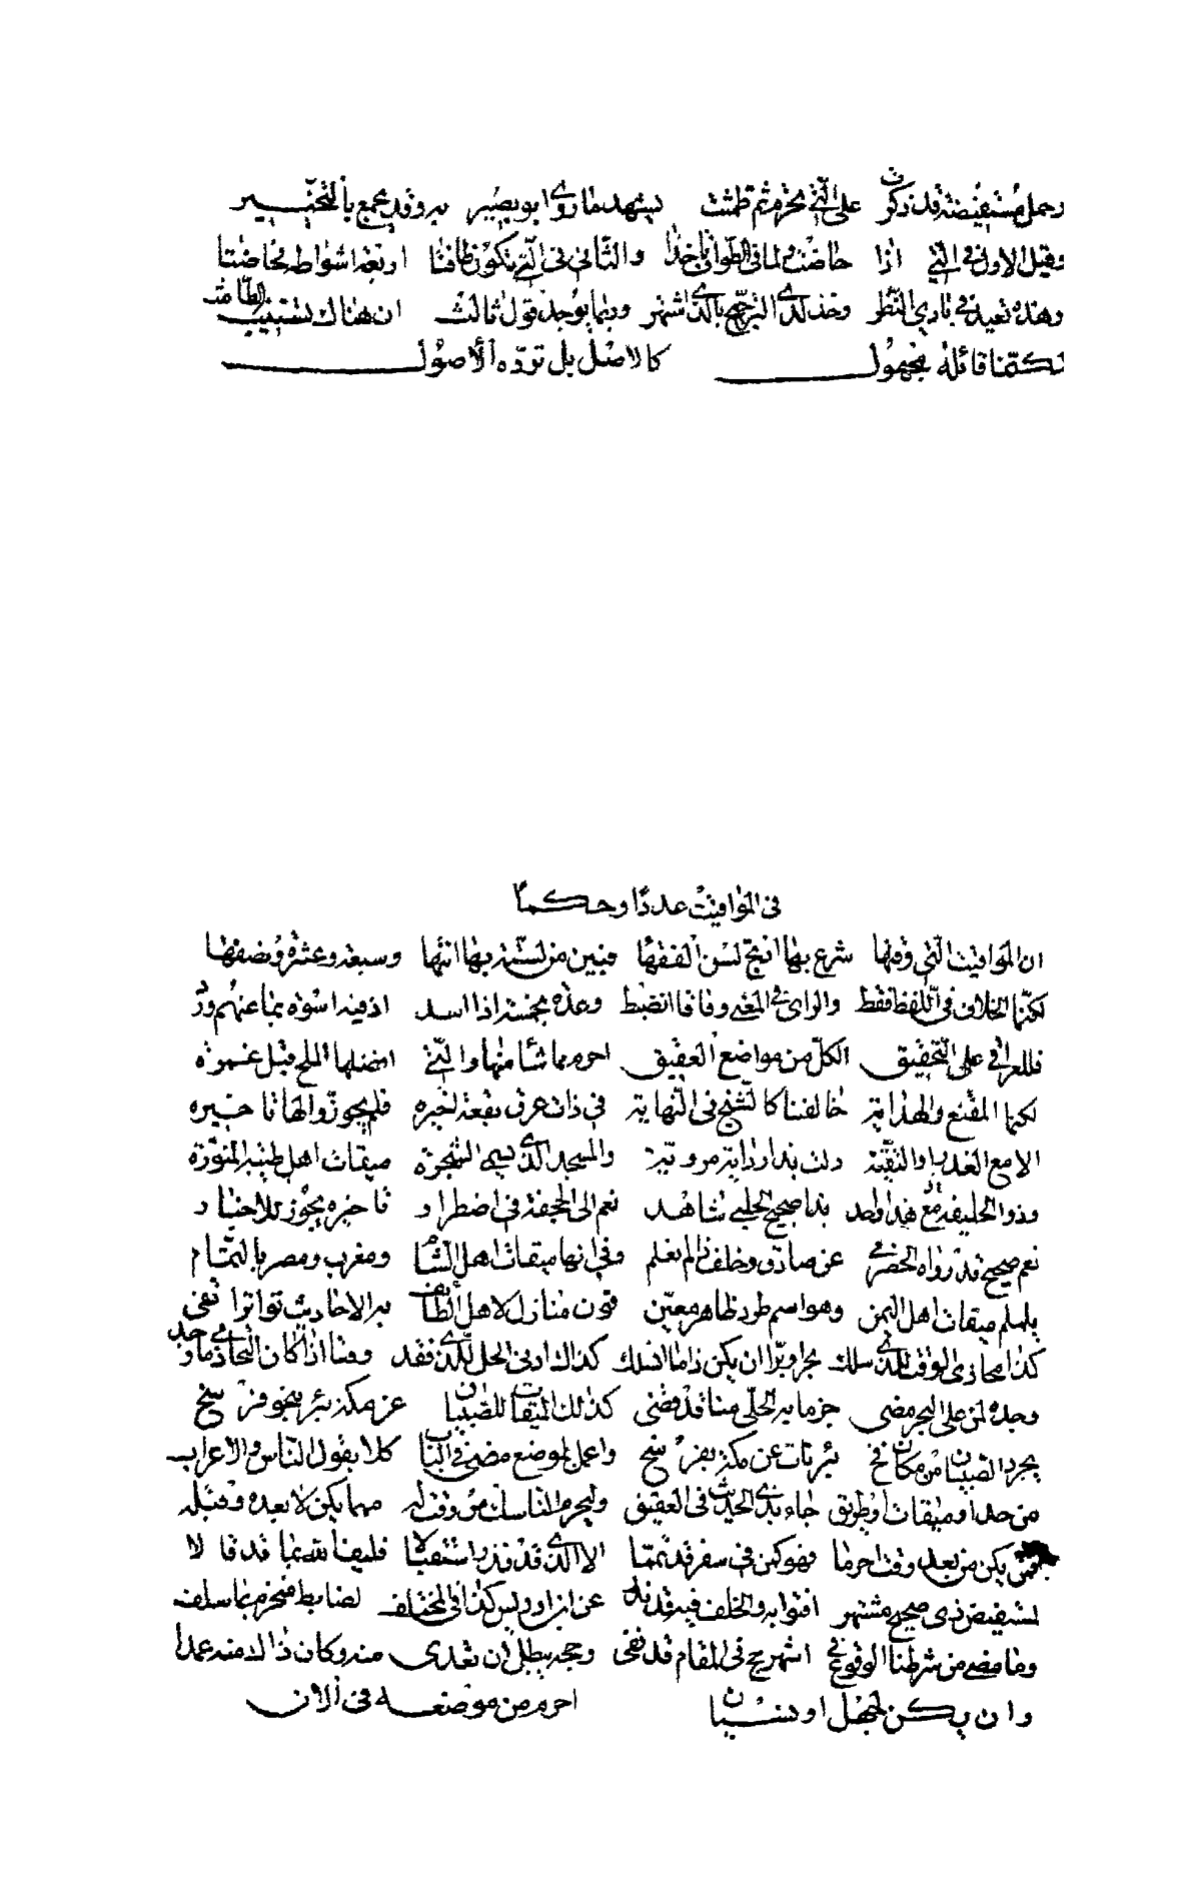 وحمل مستفيضة قد ذكرت على التي تحرم ثم طمثت يشهد ما روى ابو بصير به وقد يجمع بالتخيير
وقيل الاول في التي اذا حاضت في الطواف والثاني في التي تكون طافتا اربعة اشواط فحاضتا
وهذه تعيد في بادي النظر وخذ لدى الترجيح بالذي اشتهر وربما يوجد قول ثالث ان هناك تستنيب الطامث
لكنما قائله مجهول كالاصل بل تردّه الاصول
في المواقيت عددا وحكما
ان المواقيت التي وقتها شرع بها السن الفقها فبين من ستة بها انتها وسبعة وعشرة ونصفها
لكنما الخلاف في اللفظ فقط والراي في المعنى وفاقا انضبط وعده بخمسة اذا اسد اذ فيه اسوة بما عنهم ورد
فللعراقي على التحقيق الكل من مواضع العقيق احرم مما شا منها والتي افضلها المسلح قبل غمرة
لكنما المقنع والهداية خالفنا كالشيخ في النهاية في ذات عرق بقعة اخيره فلم يجوزوا لها تاخيره
الا مع العذر او التقية دلت بذا رواية مروية والمسجد الذي يسمى الشجرة ميقات اهل طيبة المنورة
وذو الحليفة مع هذا واحد بذا صحيح الحلبي شاهد نعم الى الجحفة في اضطرار تاخيره يجوز للاختيار
نعم صحيح قد رواه الحضرمي عن صادق وخلف لم يعلم وفي انها ميقات اهل الشام ومغرب ومصر بالتمام
يلملم ميقات اهل اليمن وهو اسم طود ظاهر معين قرن منازل لاهل الطائف به الاحاديث تواترا تفي
كذا محاذي الوقت للذي سلك بحرا وبرا ان يكن ذاما انسلك كذاك ادنى الحل للذي فقد وهنا اذا كان التحاذي ما وجد
وجده لمن على البحر مضى جزما به الحلي منا قد قضى كذلك الميقات للصبيان عن مكة بئر بنحو فرسخ
يجرد الصبيان من مكان فخ بئر نات عن مكة بفرسخ واعمل لموضع مضى في الباب كلا بقول الناس والاعراب
من حد او ميقات او طريق جاء بذي الحديث في العقيق وليحرم الناسك من وقت له مهما يكن لا بعده وقبله
يكن من بعد وقت احرما فهو كمن في سفر قد تمما الا الذي قد نذر استقبالا فليف لله بما قد قالا
لمستفيض ذي صحيح مشتهر افتوا به والخلف فيه قد عن ابن ادريس كذا في المختلف لضابط منخرم بما سلف
وما مضى من شرطنا الوقوع في اشهر حج في المقام قد تفي وحجه يبطل ان تعدى منه وكان ذالك منه عمدا
وان يكن لجهل او نسيان احرم من موضعه في الان